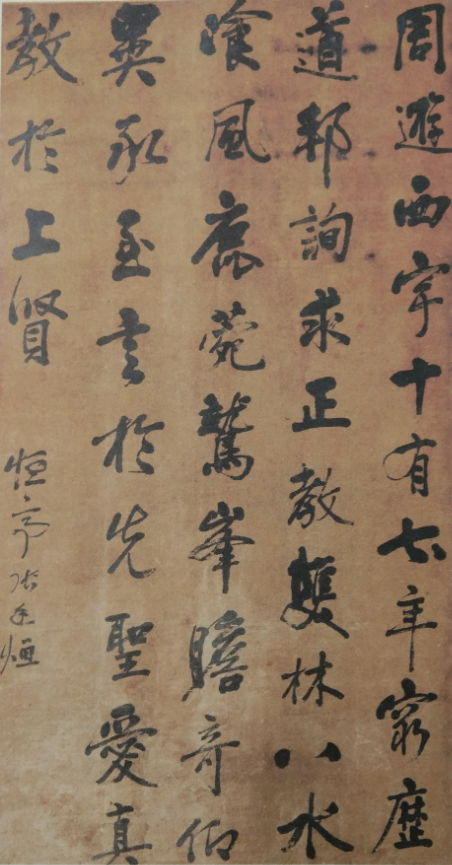 周遊西宇十有七年窮歷
道邦詢求正教雙林八水
湌風鹿菀鷲峯瞻奇仰
異承至言於先聖愛真
教於上賢
恒亭張